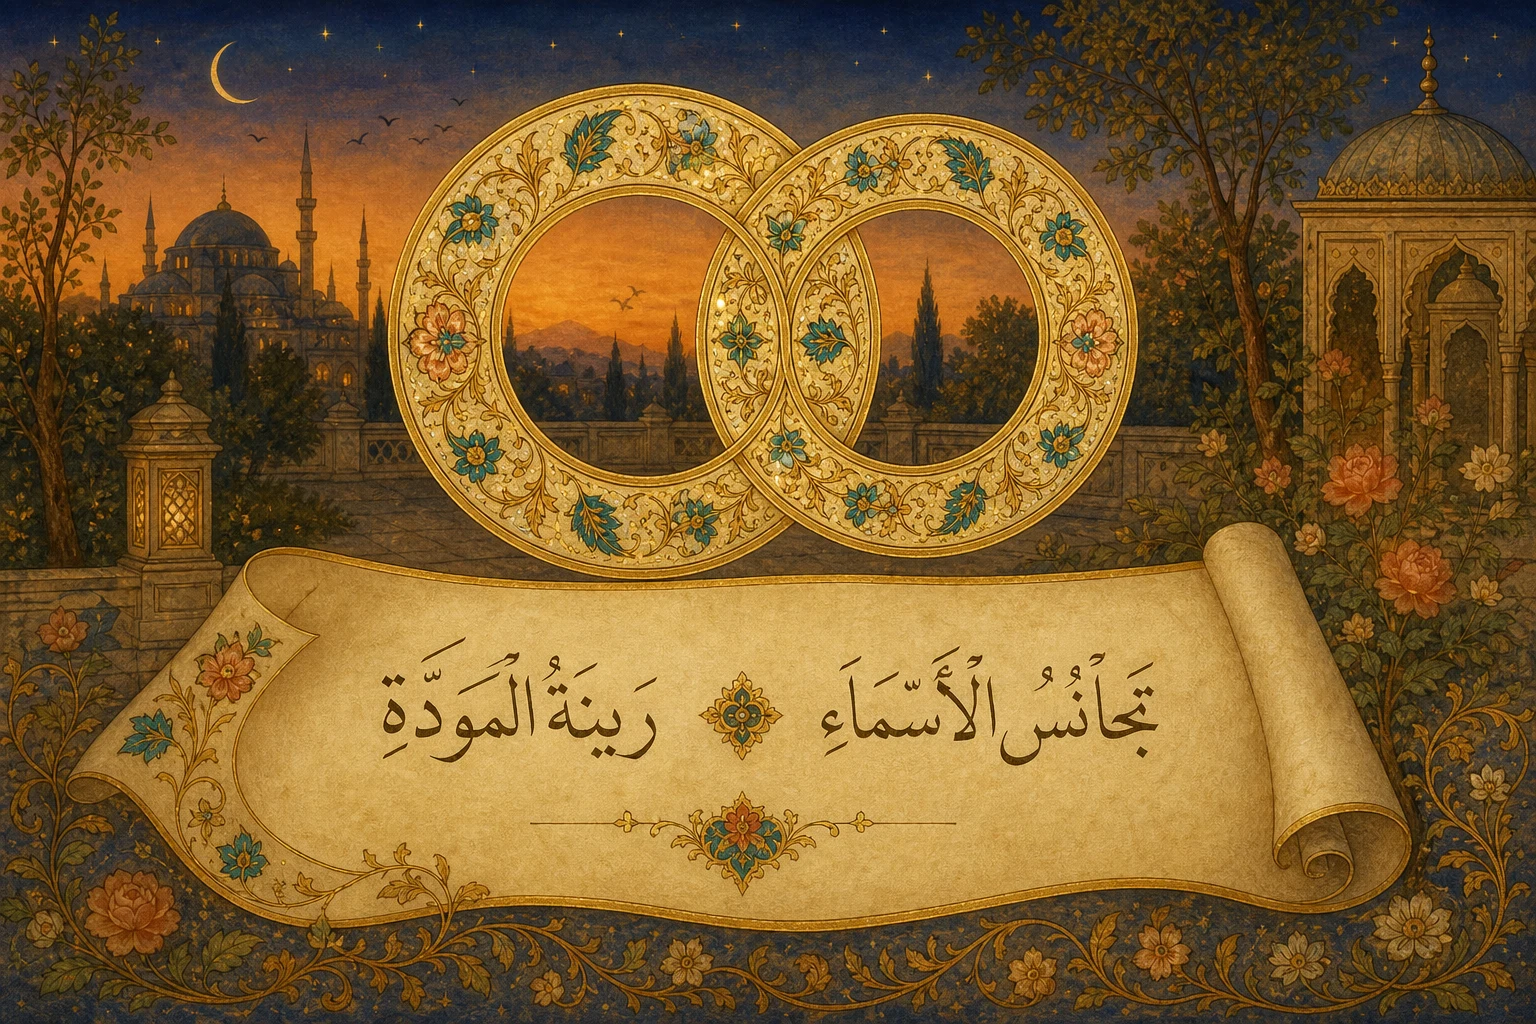 تَجاْنُسُ الْأَسّمَاءِ رَينَةُ الْمَوَدَّةِ